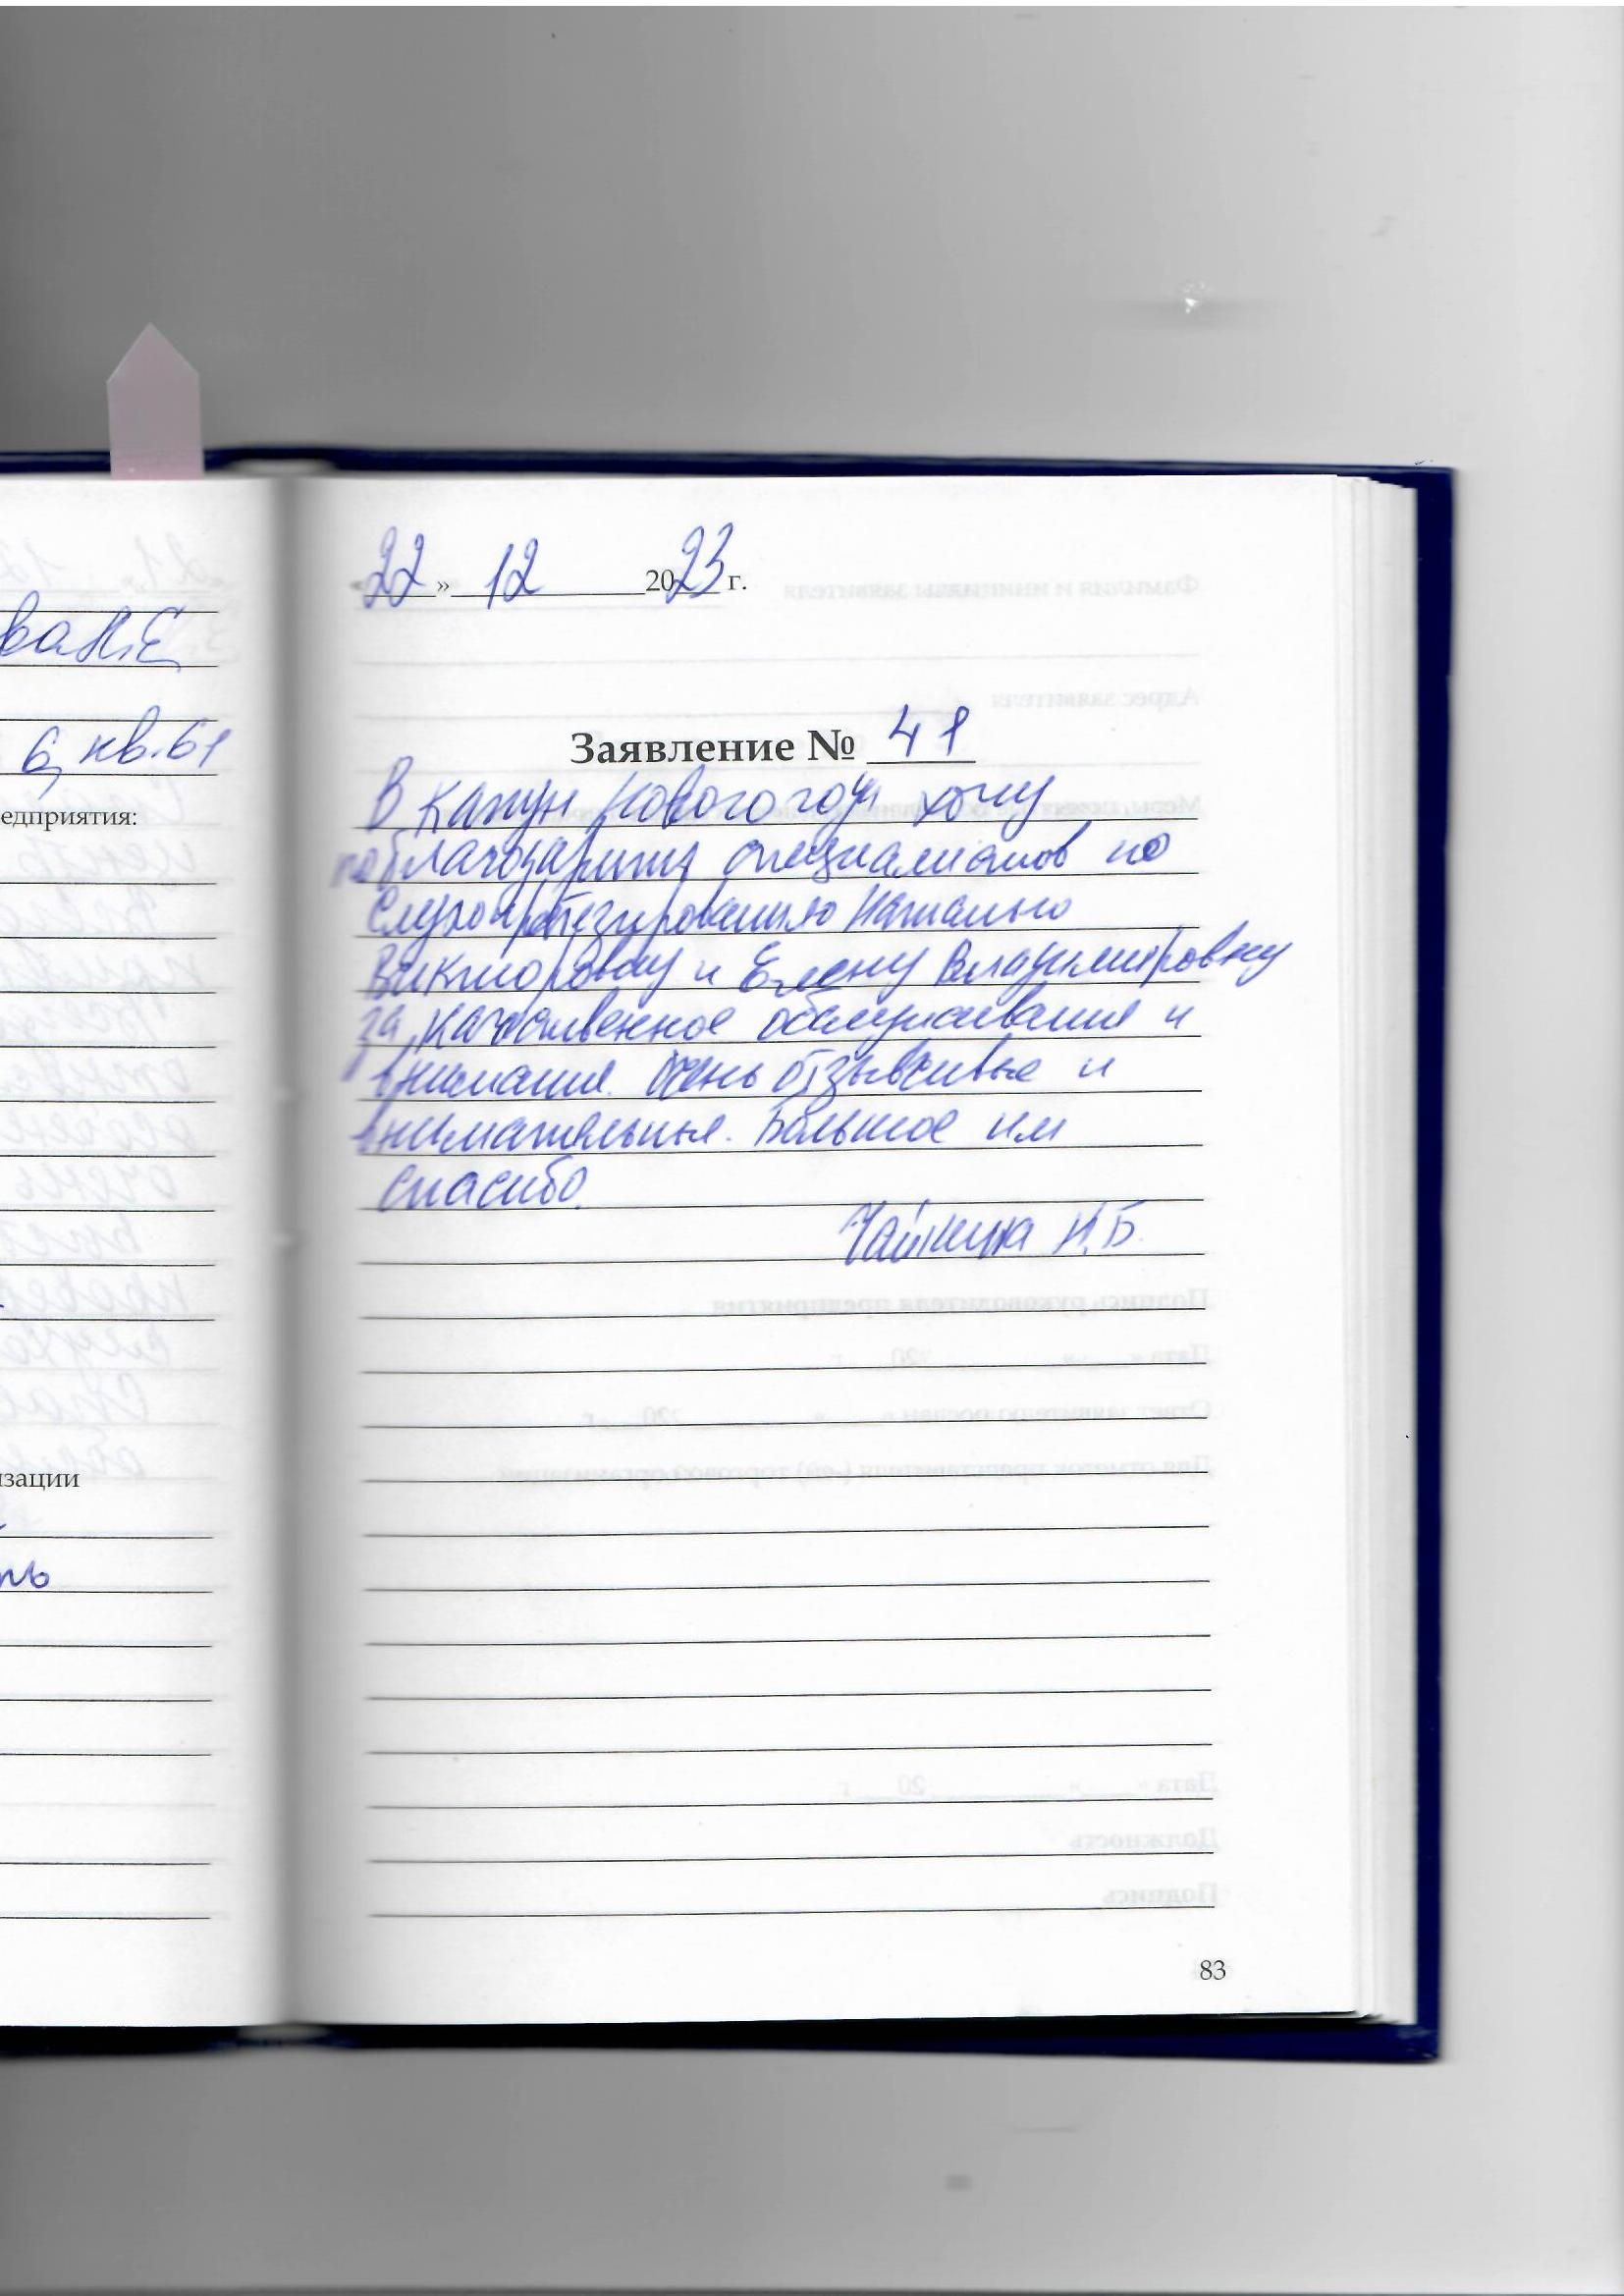 «22» 12 2023 г.
Заявление № 41
В канун Нового года хочу
поблагодарить специалистов по
слухопротезированию Наталью
Викторовну и Елену Владимировну
за качественное обслуживание и
внимание. Очень отзывчивые и
внимательные. Большое им
спасибо.
Н.Б.
83
6, кв. 61
едприятия:
изации
ть